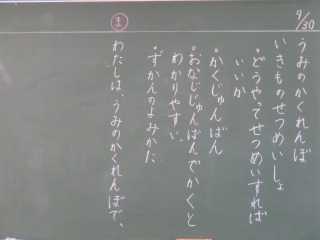 9/30
うみのかくれんぼ
いきものせつめいしょ
•どうやってせつめいすれば
いいか
•かくじゅんばん
•おなじじゅんばんでかくと
わかりやすい。
•ずかんのよみかた
ま
わたしは、うみのかくれんぼで、